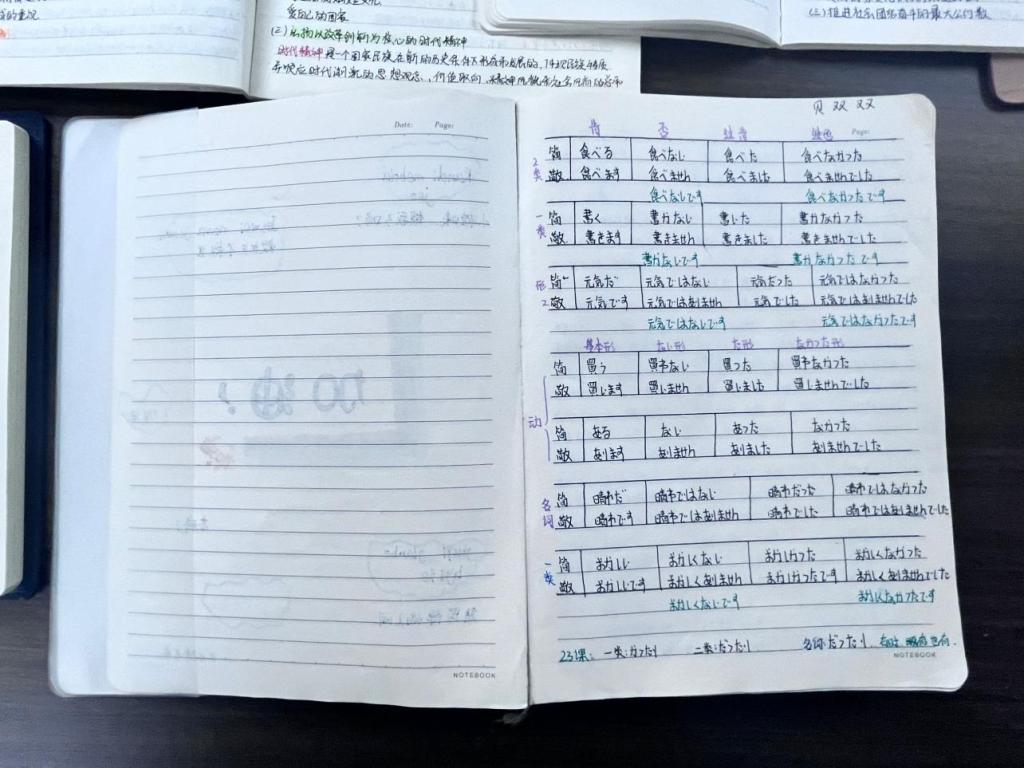 爱自己的国家
(2)弘扬以改革创新为核心的时代精神
时代精神是一个国家民族在新的历史条件下形成和发展的,体现民族特质
并顺应时代潮流的思想观念、价值取向、精神
(二)推进社会团结奋斗的最大公约数
Date: Page:
NOTEBOOK
贝 双 双
肯 否 过肯 过否 Page:
2类 简 食べる 食べない 食べた 食べなかった
敬 食べます 食べません 食べました 食べませんでした
食べないです 食べなかったです
一类 简 書く 書かない 書いた 書かなかった
敬 書きます 書きません 書きました 書きませんでした
書かないです 書かなかったです
形2 简 元気だ 元気ではない 元気だった 元気ではなかった
敬 元気です 元気ではありません 元気でした 元気ではありませんでした
元気ではないです 元気ではなかったです
基本形 ない形 た形 なかった形
动 简 買う 買わない 買った 買わなかった
敬 買います 買いません 買いました 買いませんでした
简 ある ない あった なかった
敬 あります ありません ありました ありませんでした
名词 简 晴れだ 晴れではない 晴れだった 晴れではなかった
敬 晴れです 晴れではありません 晴れでした 晴れではありませんでした
一类 简 おかしい おかしくない おかしかった おかしくなかった
敬 おかしいです おかしくありません おかしかったです おかしくありませんでした
おかしくないです おかしくなかったです
23课: 一类:かったり 二类:だったり 名词:だったり
NOTEBOOK